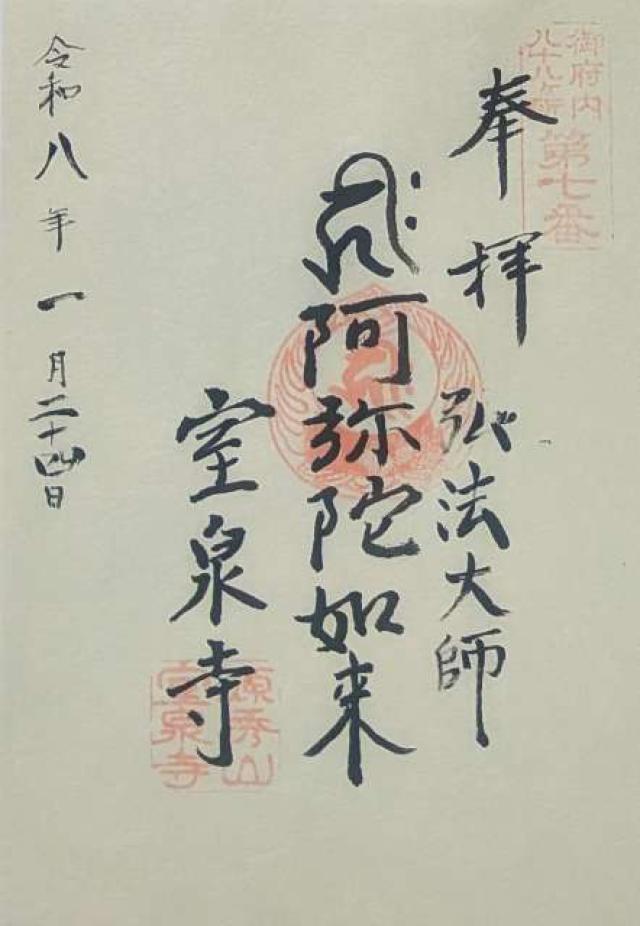 御府内
八十八ケ所
第七番
奉拝
弘法大師
阿弥陀如来
室泉寺
源秀山
室泉寺
令和八年一月二十四日